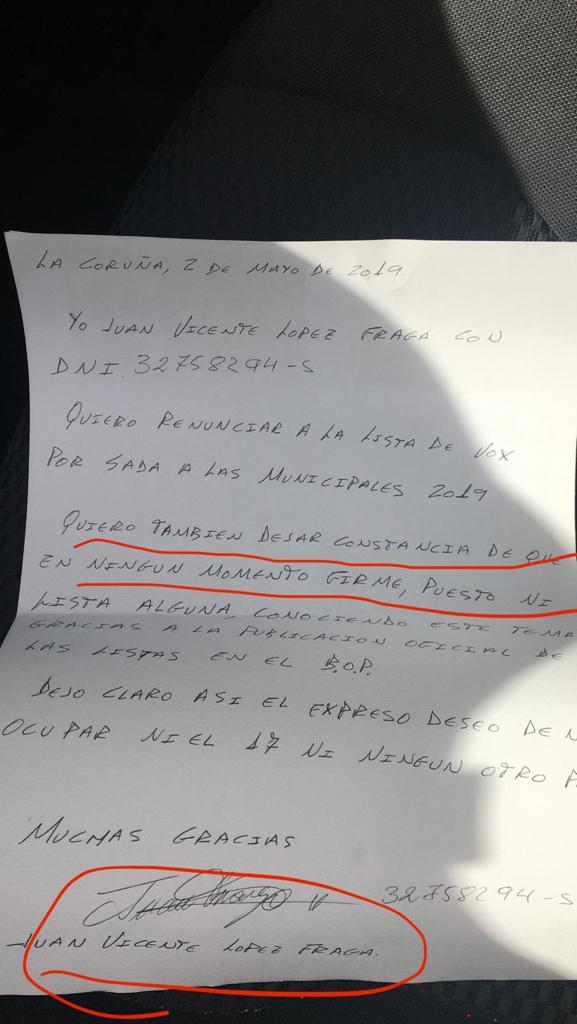 LA CORUÑA, 2 DE MAYO DE 2019
YO JUAN VICENTE LOPEZ FRAGA CON
DNI 32758294-S
QUIERO RENUNCIAR A LA LISTA DE VOX
POR SADA A LAS MUNICIPALES 2019
QUIERO TAMBIEN DEJAR CONSTANCIA DE QUE
EN NINGUN MOMENTO FIRME, PUESTO NI
LISTA ALGUNA, CONOCIENDO ESTE TEMA
GRACIAS A LA PUBLICACION OFICIAL DE
LAS LISTAS EN EL B.O.P.
DEJO CLARO ASI EL EXPRESO DESEO DE
OCUPAR NI EL 17 NI NINGUN OTRO
MUCHAS GRACIAS
32758294-S
JUAN VICENTE LOPEZ FRAGA.